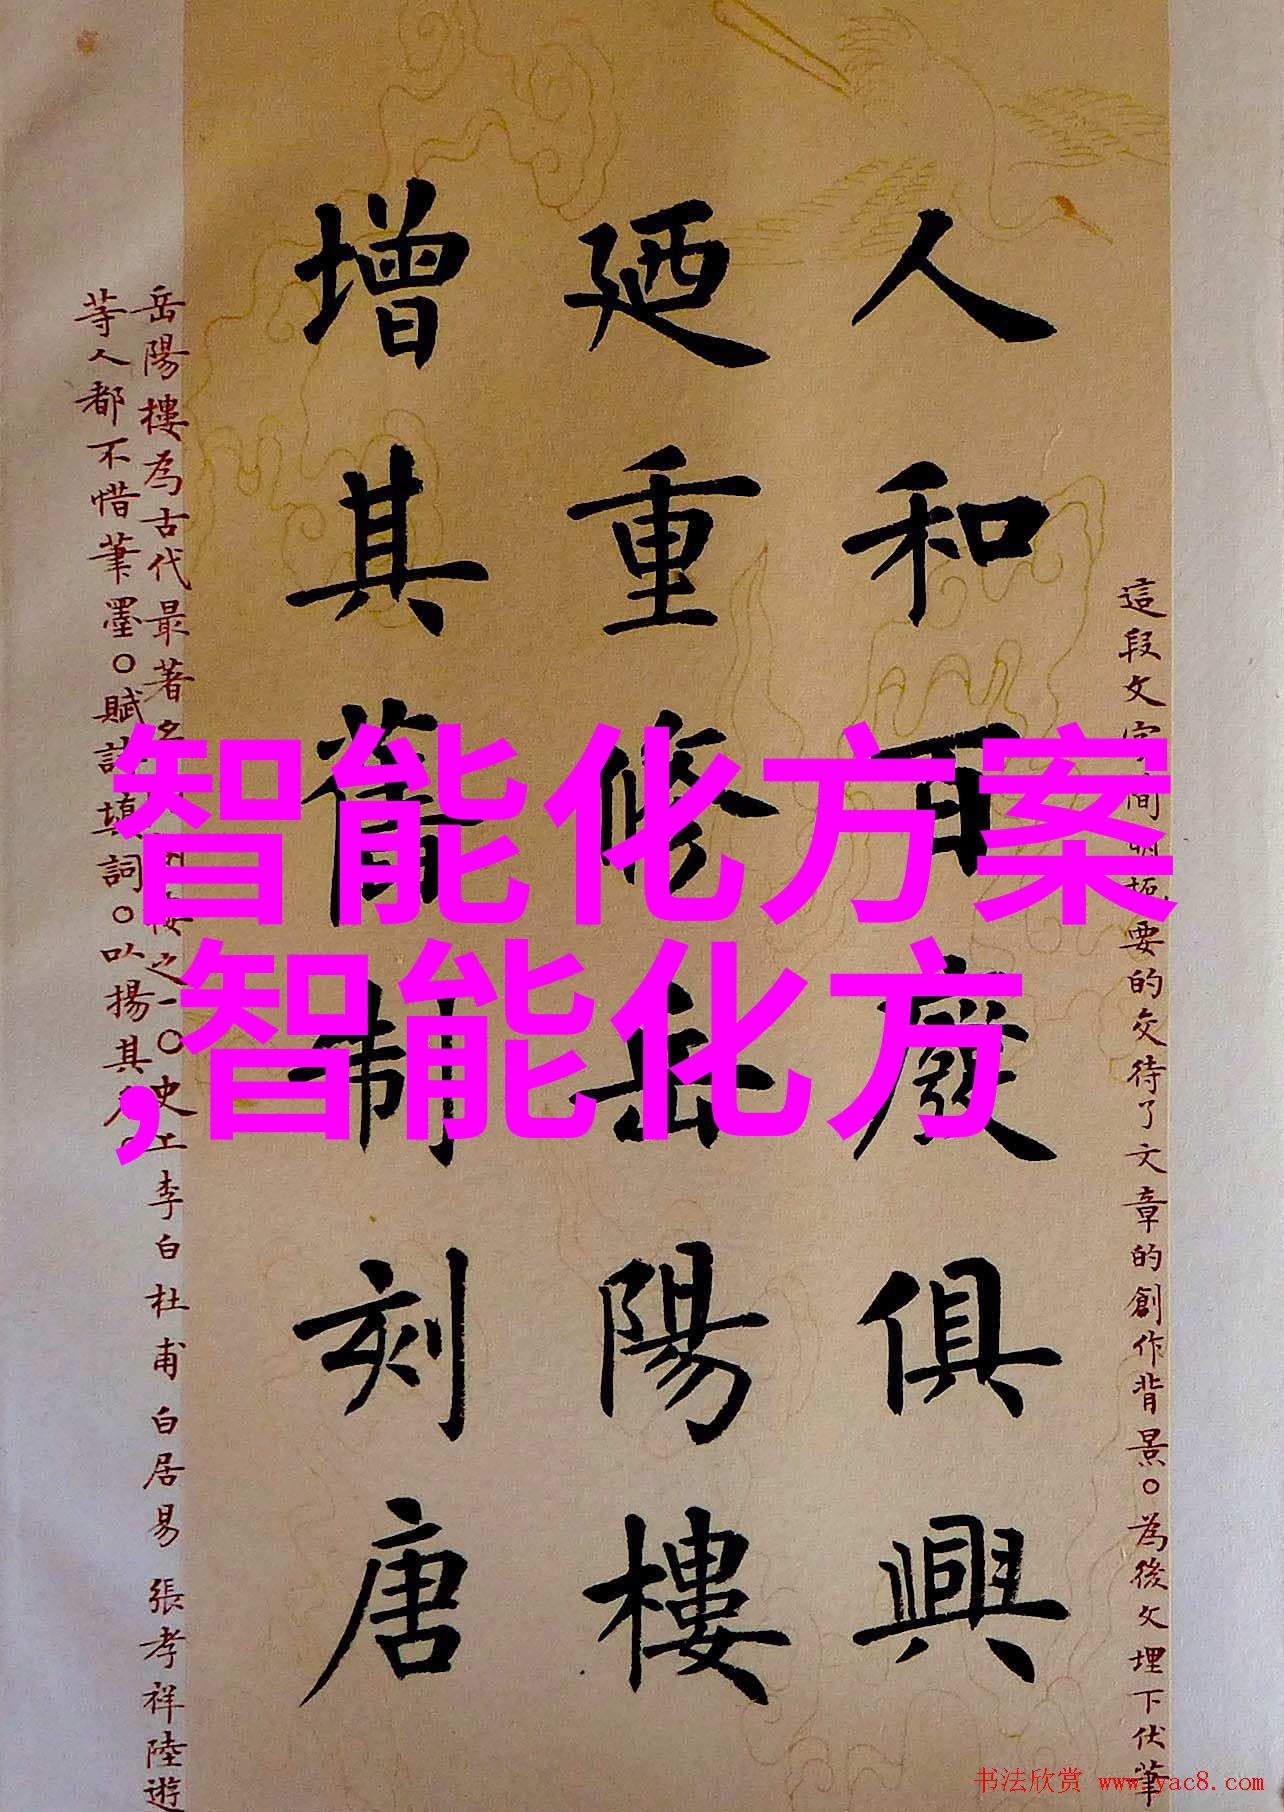 這段文字簡明扼要的交待了文章的創作背景。為後文埋下伏筆
人和百廢俱興
廼重修岳陽樓
增其舊制刻唐
岳陽樓為古代最著名樓之一。史上李白杜甫白居易張孝祥陸遊
等人都不惜筆墨。賦詩填詞。以揚其名
智能化方案
,智能化方
书法欣赏 www.yac8.com